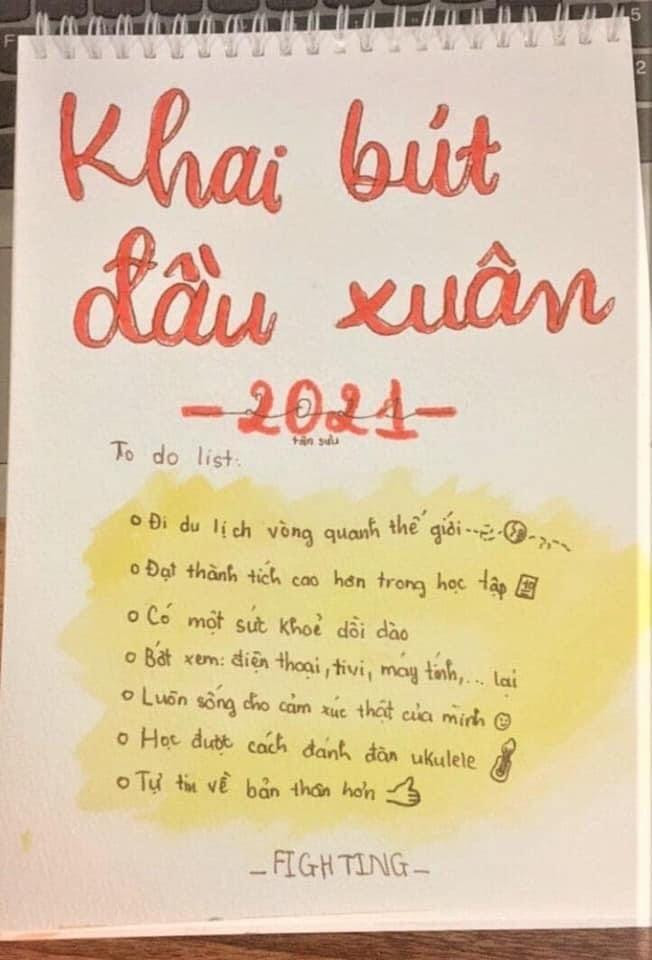 Khai bút
đầu xuân
-2021-
tân sửu
To do list:
Đi du lịch vòng quanh thế giới
Đạt thành tích cao hơn trong học tập
Có một sức khoẻ dồi dào
Bớt xem: điện thoại, tivi, máy tính,... lại
Luôn sống cho cảm xúc thật của mình
Học được cách đánh đàn ukulele
Tự tin về bản thân hơn
_FIGHTING_